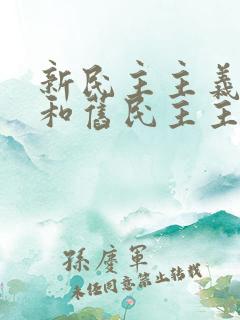 新民主主義
和舊民主主
孫慶軍
未經同意禁止轉載